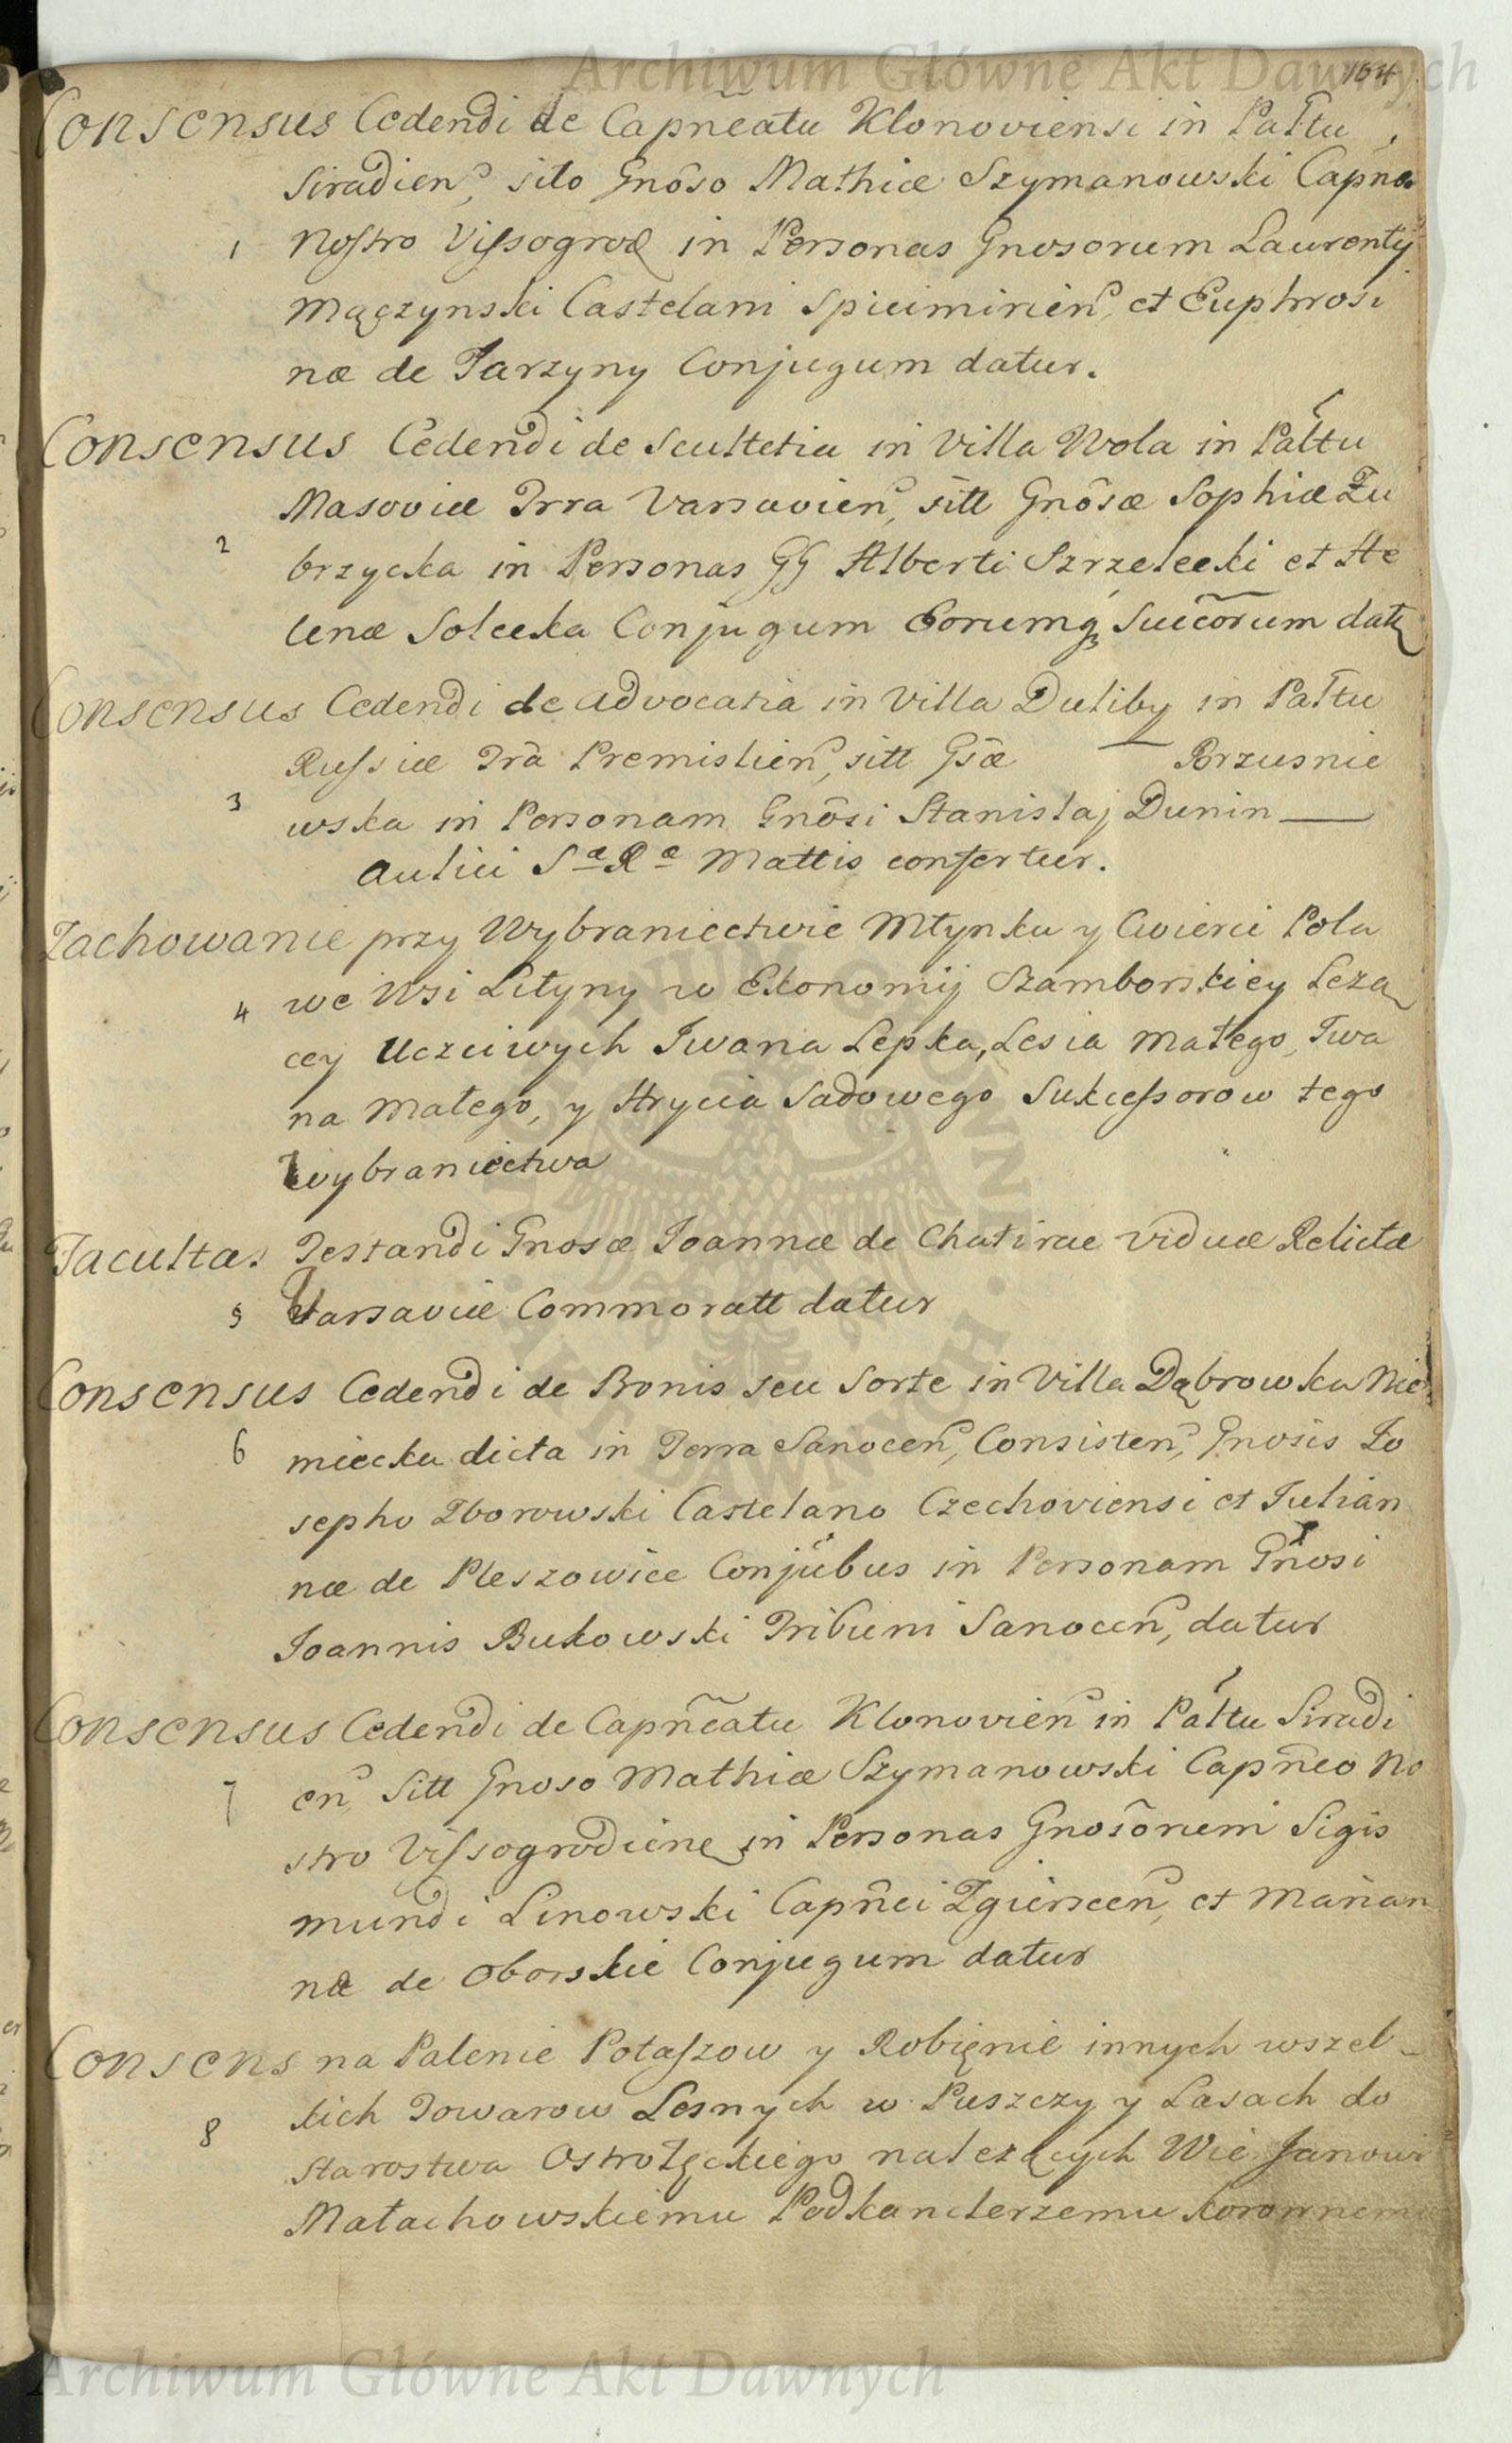 Archiwum Główne Akt Dawnych
164
Consensus Cedendi de Capn̄eatu Klonoviensi in Pałtu
Siradien, sito Gnōso Mathiæ Szymanowski Capn̄eo
1 Nostro Vissogrod in Personas Gnosorum Laurentij
Mączynski Castelani Spicimirien, et Euphrosi
næ de Jarzyny Conjugum datur.
Consensus Cedendi de Scultetia in Villa Wola in Pałtu
Masoviæ Trra Varsavien, sitt Gnōsæ Sophiæ Zu
2 brzycka in Personas GG Alberti Szrzelecki et He
lenæ Solecka Conjugum Eorumq Succōrum datr
Consensus Cedendi de Advocatia in Villa Duliby in Pałtu
Russiæ Trā Premislien, sitt Gsæ — Brzusnie
3 wska in Personam Gnōsi Stanislaj Dunin —
Aulici Sæ Ræ Mattis confertur.
Zachowanie przy Wybraniectwie Młynku y Cwierci Pola
4 we Wsi Lityny w Ekonomij Szamborskiey Leżą
cey Uczciwych Iwana Lepka, Lesia Małego, Iwa
na Małego, y Hrycia Sadowego Sukcessorow tego
Wybraniectwa
Facultas Testandi Gnosæ Joannæ de Chatirae Viduæ Relictæ
5 Varsaviæ Commoratt datur
Consensus Cedendi de Bonis seu Sorte in Villa Dąbrowka Nie
6 miecka dicta in Terra Sanocen, Consisten, Gnosis Jo
sepho Zborowski Castelano Czechoviensi et Julian
næ de Pleszowice Conjubus in Personam Gn̄osi
Joannis Bukowski Tribuni Sanocen, datur
Consensus Cedendi de Capn̄eatu Klonovien in Pałtu Siradi
7 en, Sitt Gnoso Mathiæ Szymanowski Capn̄eo No
stro Vissogrodiene in Personas Gnosōrum Sigis
mundi Linowski Capn̄ei Zgierscen, et Marian
næ de Oborskie Conjugum datur
Consens na Palenie Potaszow y Robięnie innych wszel-
8 kich Towarow Lesnych w Puszczy y Lasach do
Starostwa Ostrołęckiego należących Wie Janowi
Małachowskiemu Podkanclerzemu koronnemu
Archiwum Główne Akt Dawnych